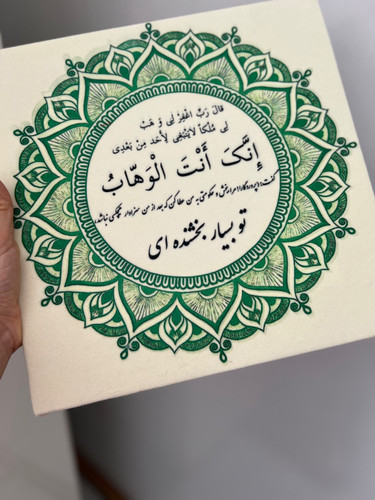 قَالَ رَبِّ اغْفِرْ لِی وَ هَبْ
لِی مُلْکاً لَایَنْبَغِی لِأَحَدٍ مِنْ بَعْدِی
إِنَّکَ أَنْتَ الْوَهَّابُ
گفت: پروردگارا! مرا ببخش و حکومتی به من عطا کن که بعد از من سزاوار هیچکس نباشد،
تو بسیار بخشنده ای